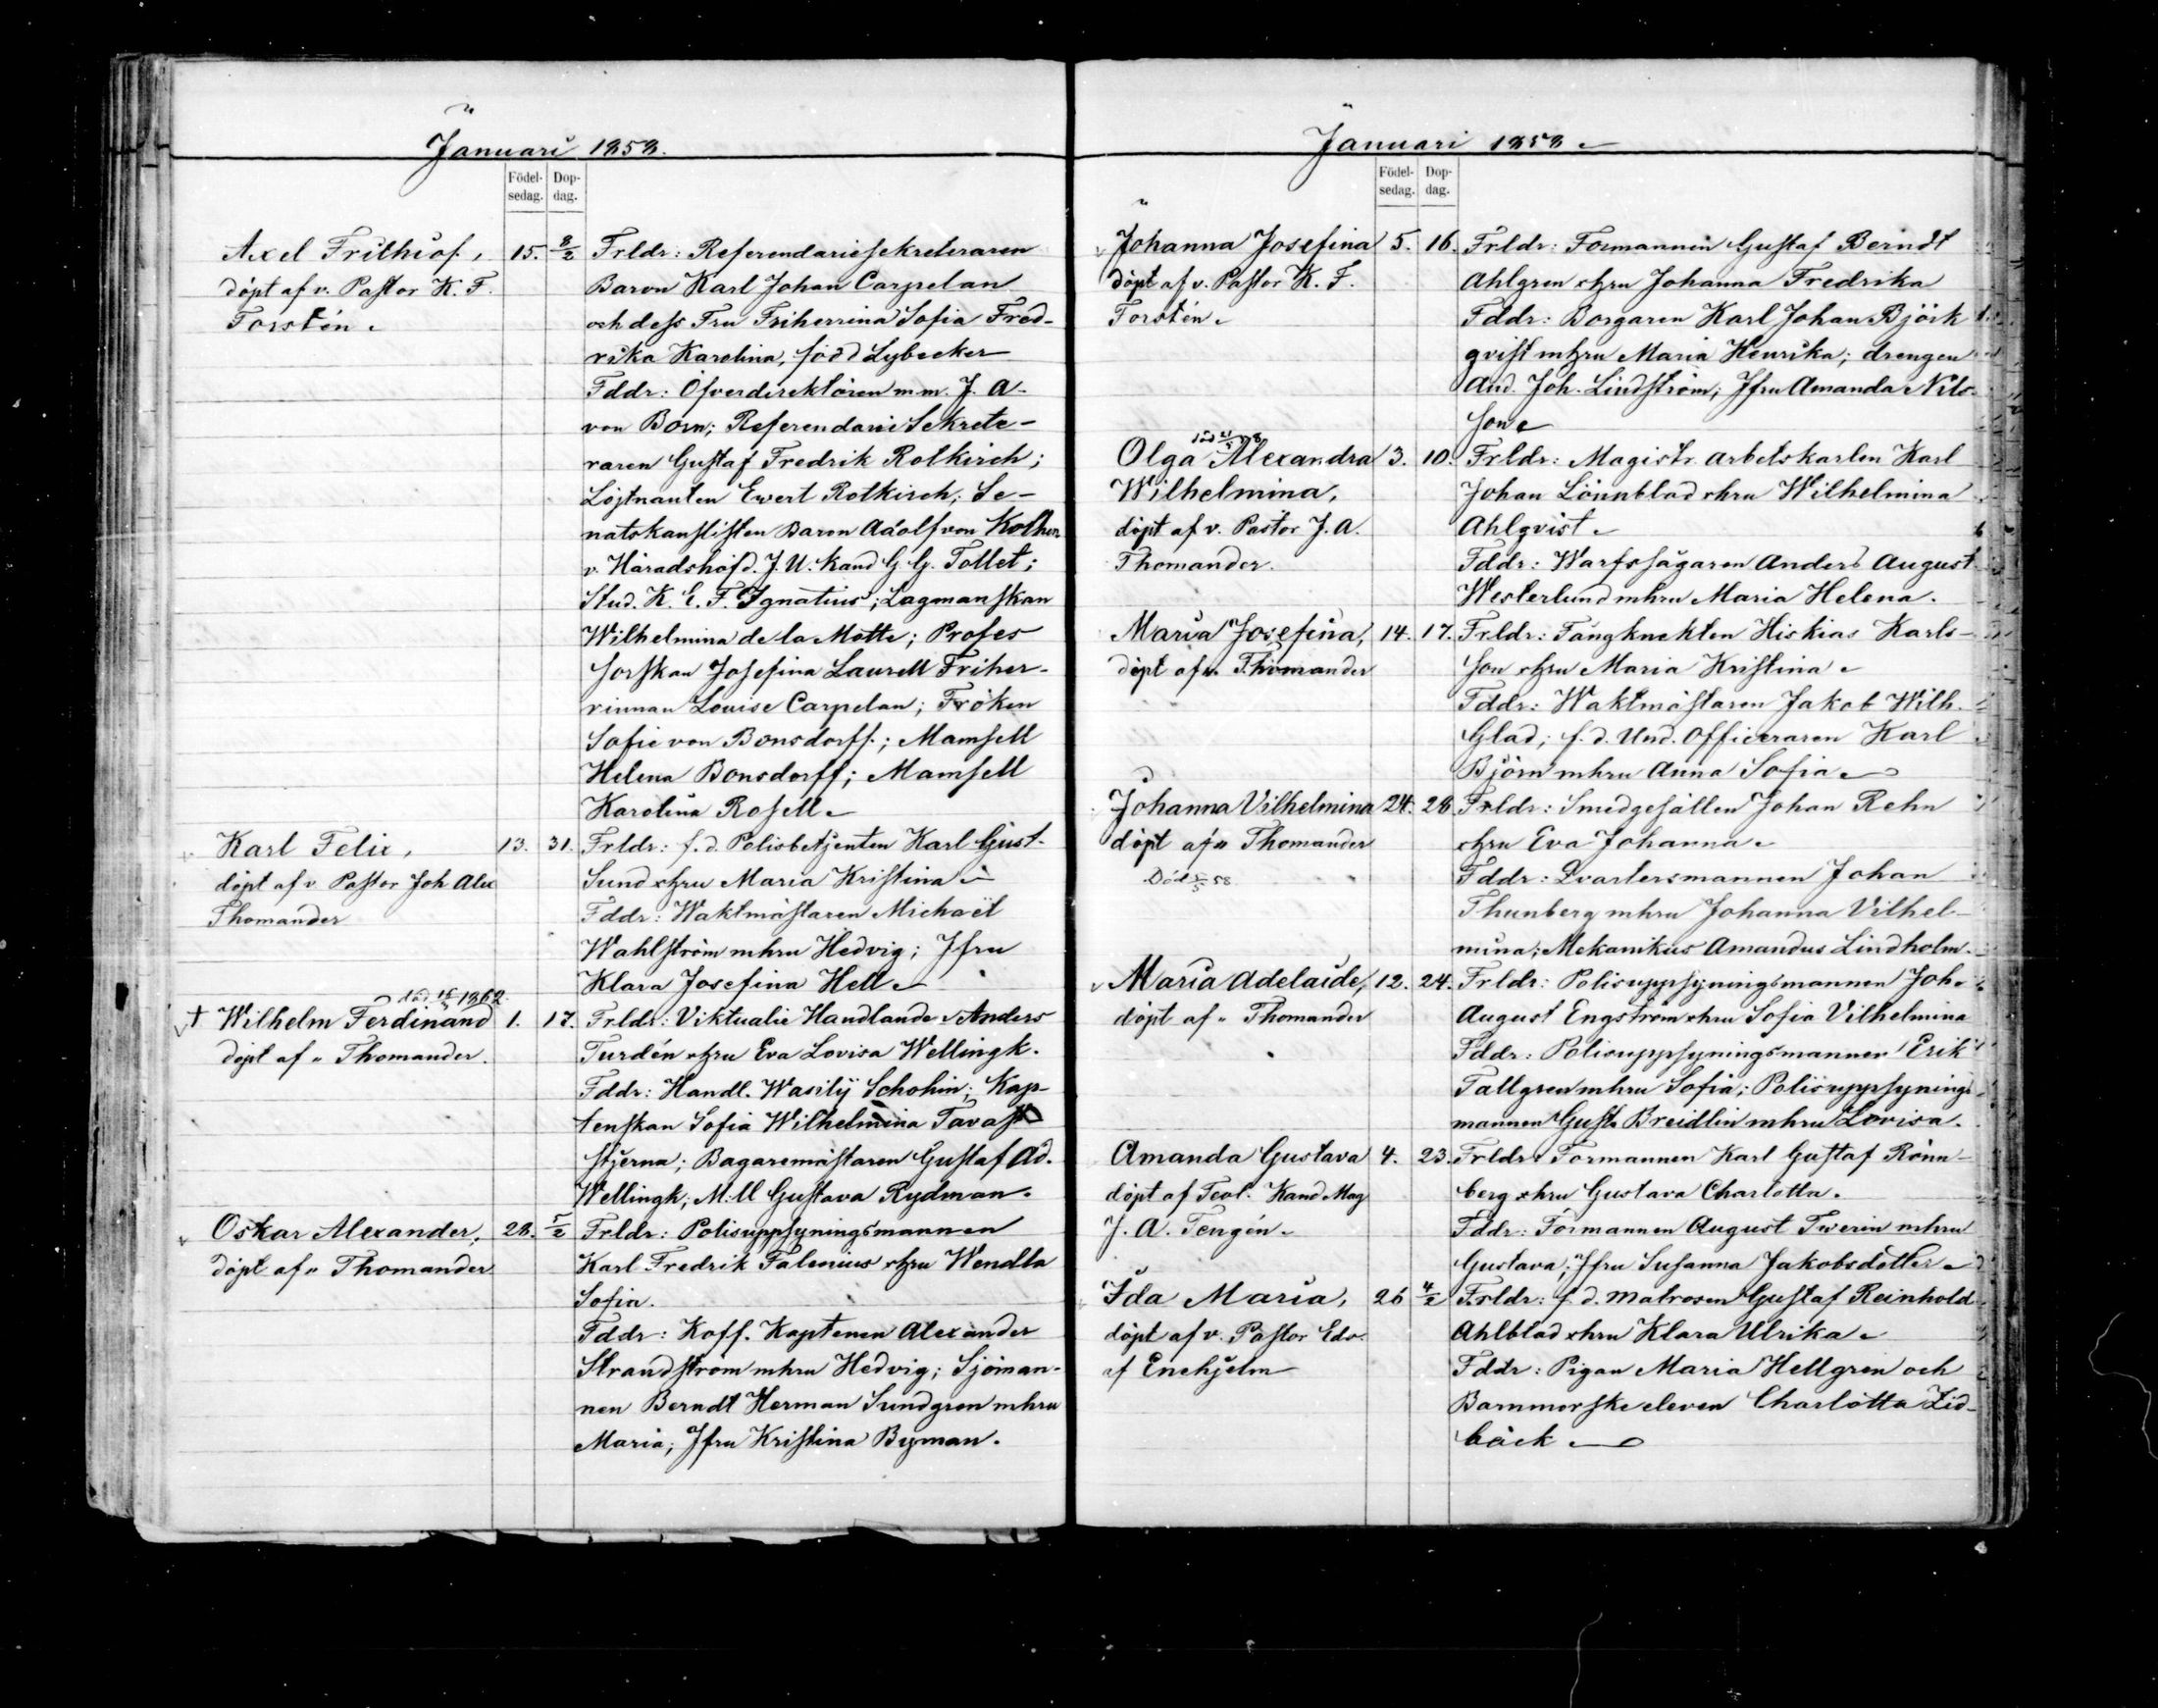 Januari 1858.
Födel-
sedag.
Dop-
dag.
Axel Frithiof,
döpt af v. Pastor K. F.
Torstén.
15. 8/2
Frldr: Referendariesekreteraren
Baron Karl Johan Carpelan
och dess Fru Friherrina Sofia Fred-
rika Karolina, född Lybecker
Fddr: Öfverdirektören m.m. J. A.
von Born; Referendarie Sekrete-
raren Gustaf Fredrik Rotkirch;
Löjtnanten Ewert Rotkirch; Se-
natskanslisten Baron Adolf von Kothen
v. Häradshöfd. J. U. Kand G. G. Tollet;
Stud. K. E. F. Ignatius; Lagmanskan
Wilhelmina de la Motte; Profes
sorskan Josefina Laurell Friher-
rinnan Louise Carpelan; Fröken
Sofie von Bonsdorff.; Mamsell
Helena Bonsdorff; Mamsell
Karolina Rosell
Karl Felix,
döpt af v. Pastor Joh. Alex
Thomander
13. 31.
Frldr: f. d. Polisbetjenten Karl Gust.
Sund o hru Maria Kristina
Fddr: Waktmästaren Michaël
Wahlström m hru Hedvig; Jfru
Klara Josefina Hell
död 1862.
† Wilhelm Ferdinand
döpt af " Thomander.
1. 17.
Frldr: Viktualie Handlande Anders
Turdén o hru Eva Lovisa Wellingk.
Fddr: Handl. Wasilij Schohin; Kap-
tenskan Sofia Wilhelmina Tavast
stjerna; Bagaremästaren Gustaf Ad.
Wellingk; M:ll Gustava Rydman.
Oskar Alexander,
döpt af " Thomander
28. 5/2
Frldr: Polisuppsyningsmannen
Karl Fredrik Falenius o hru Wendla
Sofia.
Fddr: Koff. Kaptenen Alexander
Strandström m hru Hedvig; Sjöman-
nen Berndt Herman Sundgren m hru
Maria; Jfru Kristina Byman.
Januari 1858
Födel-
sedag.
Dop-
dag.
Johanna Josefina
döpt af v. Pastor K. F.
Torstén.
5. 16.
Frldr: Formannen Gustaf Berndt
Ahlgren o hru Johanna Fredrika
Fddr: Borgaren Karl Johan Björk
qvist m hru Maria Henrika; drengen
And. Joh. Lindström; Jfru Amanda Nils-
son
död
Olga Alexandra
Wilhelmina,
döpt af v. Pastor J. A.
Thomander.
3. 10.
Frldr: Magistr. arbetskarlen Karl
Johan Lönnblad o hru Wilhelmina
Ahlqvist
Fddr: Warfssågaren Anders August
Westerlund m hru Maria Helena.
Maria Josefina,
döpt af " Thomander
14. 17.
Frldr: Fångknekten Hiskias Karls-
son o hru Maria Kristina
Fddr: Waktmästaren Jakob Wilh.
Glad; f. d. Und. Officeraren Karl
Björn m hru Anna Sofia
Johanna Vilhelmina
döpt af " Thomander
Död 58
24. 28
Frldr: Smedgesällen Johan Rehn
o hru Eva Johanna
Fddr: Qvartersmannen Johan
Thunberg m hru Johanna Vilhel-
mina; Mekanikus Amandus Lindholm.
Maria Adelaide,
döpt af " Thomander
12. 24.
Frldr: Polisuppsyningsmannen Joh.
August Engström o hru Sofia Vilhelmina
Fddr: Polisuppsyningsmannen Erik
Tallgren m hru Sofia; Polisuppsynings
mannen Gust. Breidlin m hru Lovisa.
Amanda Gustava
döpt af Teol. Kand Mag
J. A. Tengén.
4. 23.
Frldr: Formannen Karl Gustaf Rönn-
berg o hru Gustava Charlotta.
Fddr: Formannen August Twerin m hru
Gustava; Jfru Susanna Jakobsdotter
Ida Maria,
döpt af v. Pastor Edv.
af Enehjelm
26 4/2
Frldr: f. d. Matrosen Gustaf Reinhold
Ahlblad o hru Klara Ulrika
Fddr: Pigan Maria Hellgren och
Barnmorske eleven Charlotta Lid-
bäck